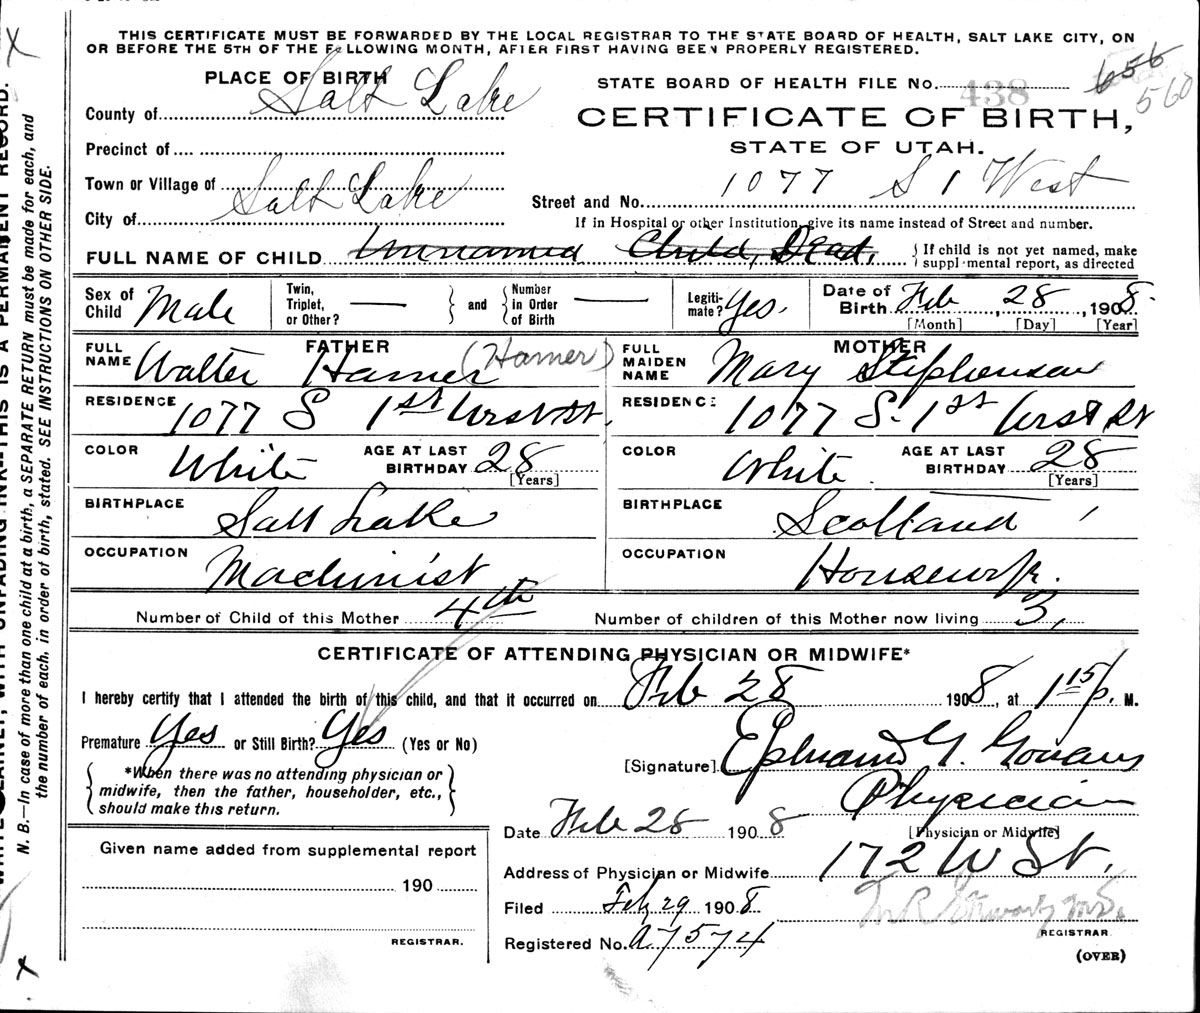 THIS CERTIFICATE MUST BE FORWARDED BY THE LOCAL REGISTRAR TO THE STATE BOARD OF HEALTH, SALT LAKE CITY, ON
OR BEFORE THE 5TH OF THE FOLLOWING MONTH, AFTER FIRST HAVING BEEN PROPERLY REGISTERED.
PLACE OF BIRTH
County of Salt Lake
Precinct of
Town or Village of
City of Salt Lake
STATE BOARD OF HEALTH FILE No. 438 656
560
CERTIFICATE OF BIRTH,
STATE OF UTAH.
Street and No. 1077 S 1 West
If in Hospital or other Institution, give its name instead of Street and number.
FULL NAME OF CHILD Unnamed Child, Dead. If child is not yet named, make
supplemental report, as directed
Sex of Child Male
Twin, Triplet, or Other? — and Number in Order of Birth —
Legitimate? Yes.
Date of Birth Feb, 28, 1908.
[Month] [Day] [Year]
FATHER
FULL NAME Walter Hamer (Hamer)
RESIDENCE 1077 S 1st West St.
COLOR White AGE AT LAST BIRTHDAY 28 [Years]
BIRTHPLACE Salt Lake
OCCUPATION Machinist
MOTHER
FULL MAIDEN NAME Mary Stephenson
RESIDENCE 1077 S. 1st West St
COLOR White AGE AT LAST BIRTHDAY 28 [Years]
BIRTHPLACE Scotland
OCCUPATION Housewife.
Number of Child of this Mother 4th Number of children of this Mother now living 3,
CERTIFICATE OF ATTENDING PHYSICIAN OR MIDWIFE*
I hereby certify that I attended the birth of this child, and that it occurred on Feb 28 1908, at 1 15 p. M.
Premature Yes or Still Birth? Yes (Yes or No)
*When there was no attending physician or
midwife, then the father, householder, etc.,
should make this return.
[Signature] Ephraim G. Gowans
Physician
[Physician or Midwife]
Date Feb 28 1908
Address of Physician or Midwife 172 W St.
Filed Feb 29 1908
REGISTRAR
Registered No. a7574
(OVER)
Given name added from supplemental report
190
REGISTRAR.
WRITE PLAINLY, WITH UNFADING INK—THIS IS A PERMANENT RECORD.
N. B.—In case of more than one child at a birth, a SEPARATE RETURN must be made for each, and
the number of each, in order of birth, stated. SEE INSTRUCTIONS ON OTHER SIDE.